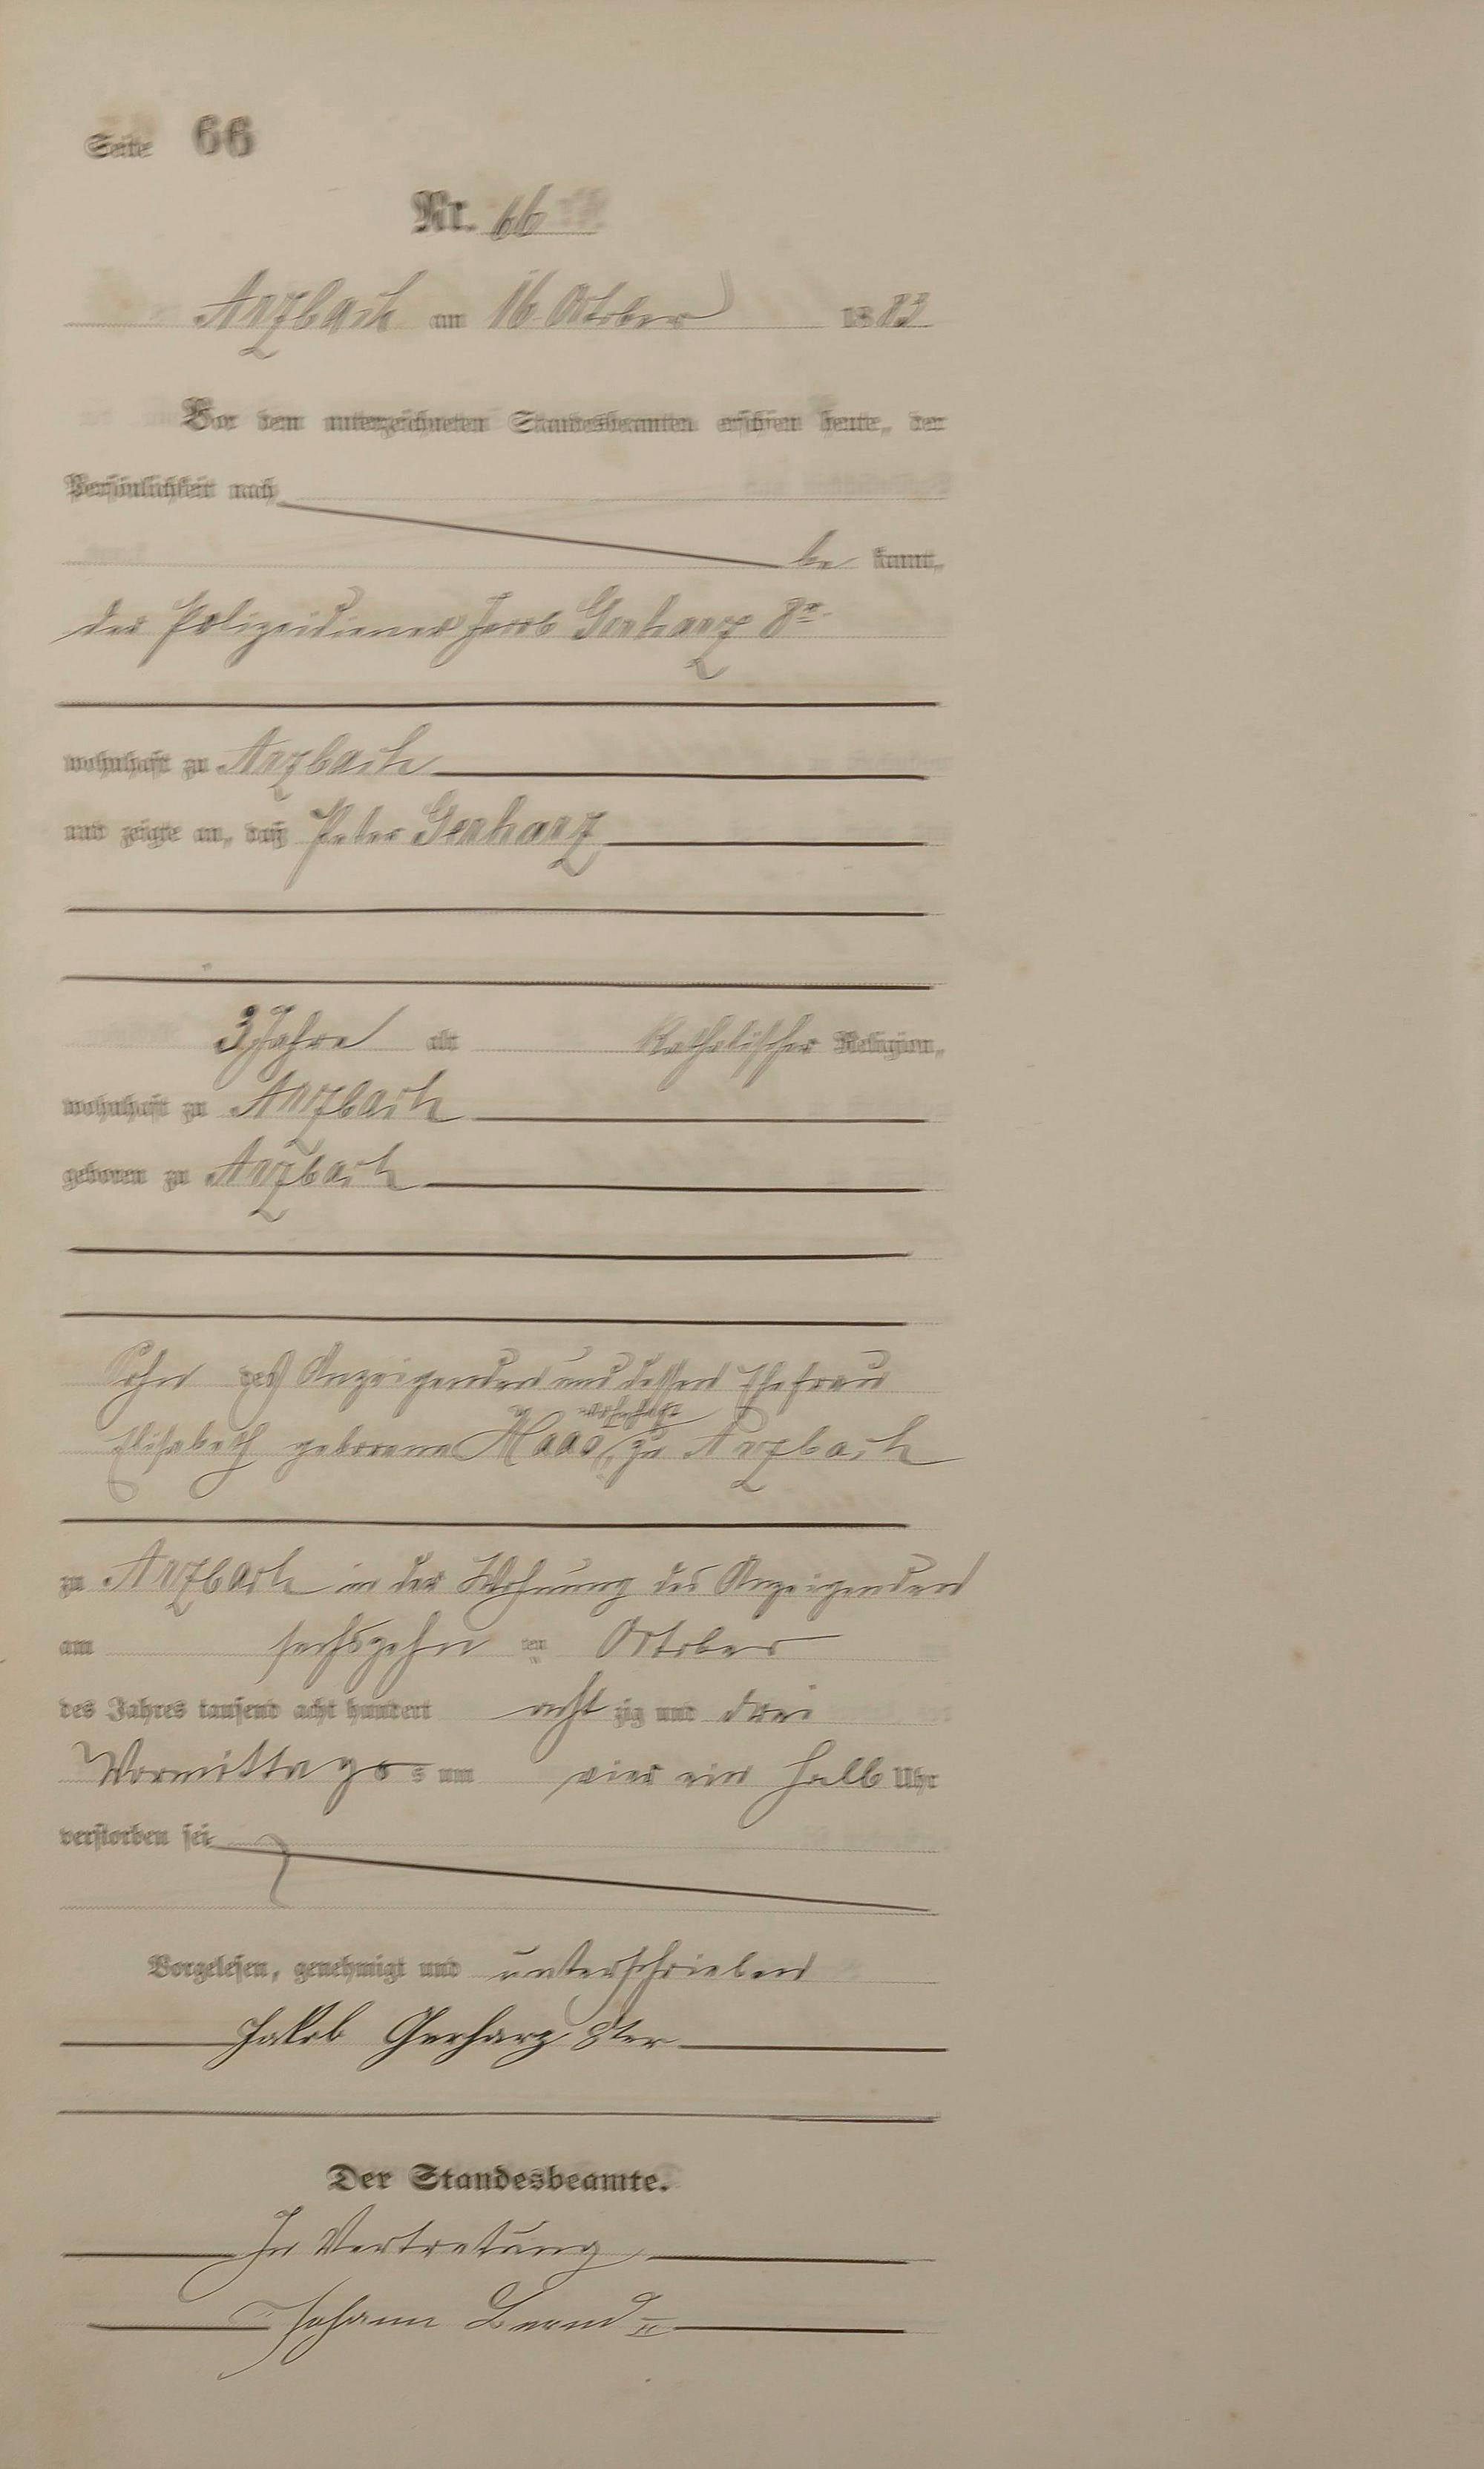 Seite 66
Nr. 66
Arzbach am 16. October 1883
Vor dem unterzeichneten Standesbeamten erschien heute, der
Persönlichkeit nach
be kannt,
der Polizeidiener Jacob Gerharz 8r
wohnhaft zu Arzbach
und zeigte an, daß Peter Gerharz
3 Jahre alt Katholischer Religion,
wohnhaft zu Arzbach
geboren zu Arzbach
Sohn des Anzeigenden und dessen Ehefrau
wohnhaft
Elisabeth geborene Haas zu Arzbach
zu Arzbach in der Wohnung des Anzeigenden
am sechszehn ten October
des Jahres tausend acht hundert acht zig und drei
Vormittags s um vier ein halb Uhr
verstorben sei
Vorgelesen, genehmigt und unterschrieben
Jakob Gerharz 8ter
Der Standesbeamte.
In Vertretung
Johann Bernd II